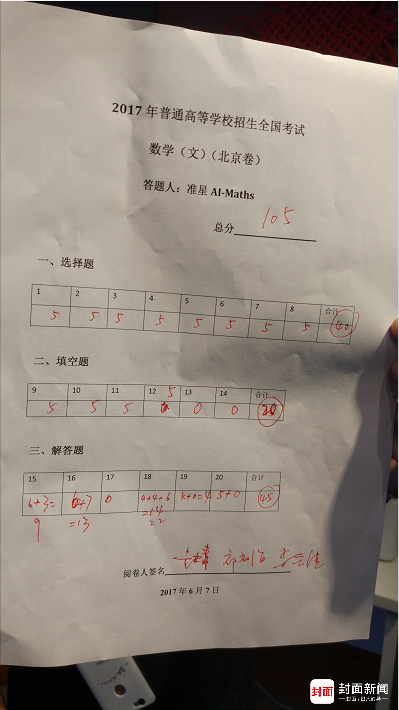 2017 年普通高等学校招生全国考试
数学（文）（北京卷）
答题人：准星 AI-Maths
总分 105
一、选择题
1 2 3 4 5 6 7 8 合计
5 5 5 5 5 5 5 5 40
二、填空题
9 10 11 12 13 14 合计
5 5 5 5 0 0 20
三、解答题
15 16 17 18 19 20 合计
6+3= 0 4+4+6 5+0 45
9 =13 =14
阅卷人签名
2017 年 6 月 7 日
封面 封面新闻